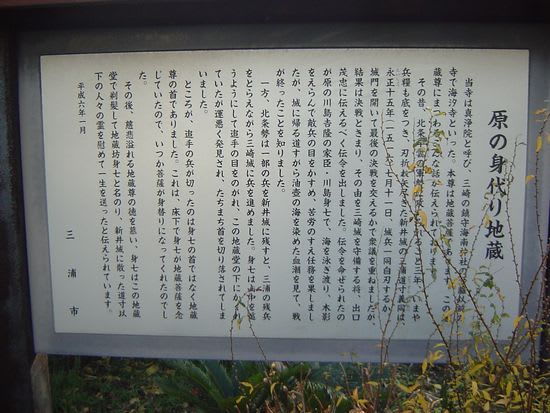 原の身代り地蔵
当寺は真浄院と呼び、三崎の鎮守海南神社の
寺で海汐寺といった。本尊は地蔵菩薩であります。この地
蔵尊にまつわる
その昔、北条早雲の軍勢に
ること三年、いまや
兵糧も底をつき、刃折れ矢尽きた新井城の三浦道寸義同は、
永正十五年(一五一六)七月十一日、城兵一同白刃するか、
城門を開いて最後の決戦を交えるかで衆議を重ねましたが、
結果は決戦ときまり、その由を三崎城を守備する将、出口
茂忠に伝えるべく伝令を出しました。伝令を命ぜられたの
が原の川島𠮷隆の家臣・川島身七で、海を泳ぎ渡り、木影
をえらんで敵兵の目をかすめ、苦労のすえ任務を果しまし
たが、城に帰る道すから油壺の海を染めた血潮を見て、戦
が終ったことを知りました。
一方、北条勢は一部の兵を新井城に残すと、三浦の残兵
をとらえながら三崎城に兵を進めました。身七は山中を
うようにして追手の目をのがれ、この地蔵堂の下にかくれ
ていたが運悪く発見され、たちまち首を切り落されてしま
いました。
ところが、追手の兵が切ったのは身七の首ではなく地蔵
尊の首でありました。これは、床下で身七が地蔵菩薩を念
じていたので、いつか菩薩が身替りになってくれたのでし
た。
その後、慈悲溢れる地蔵尊の徳を慕い、身七はこの地蔵
堂で剃髪して地蔵坊身七と名のり、新井城に散った道寸以
下の人々の霊を慰めて一生を送ったと伝えられています。
平成六年一月
三浦市